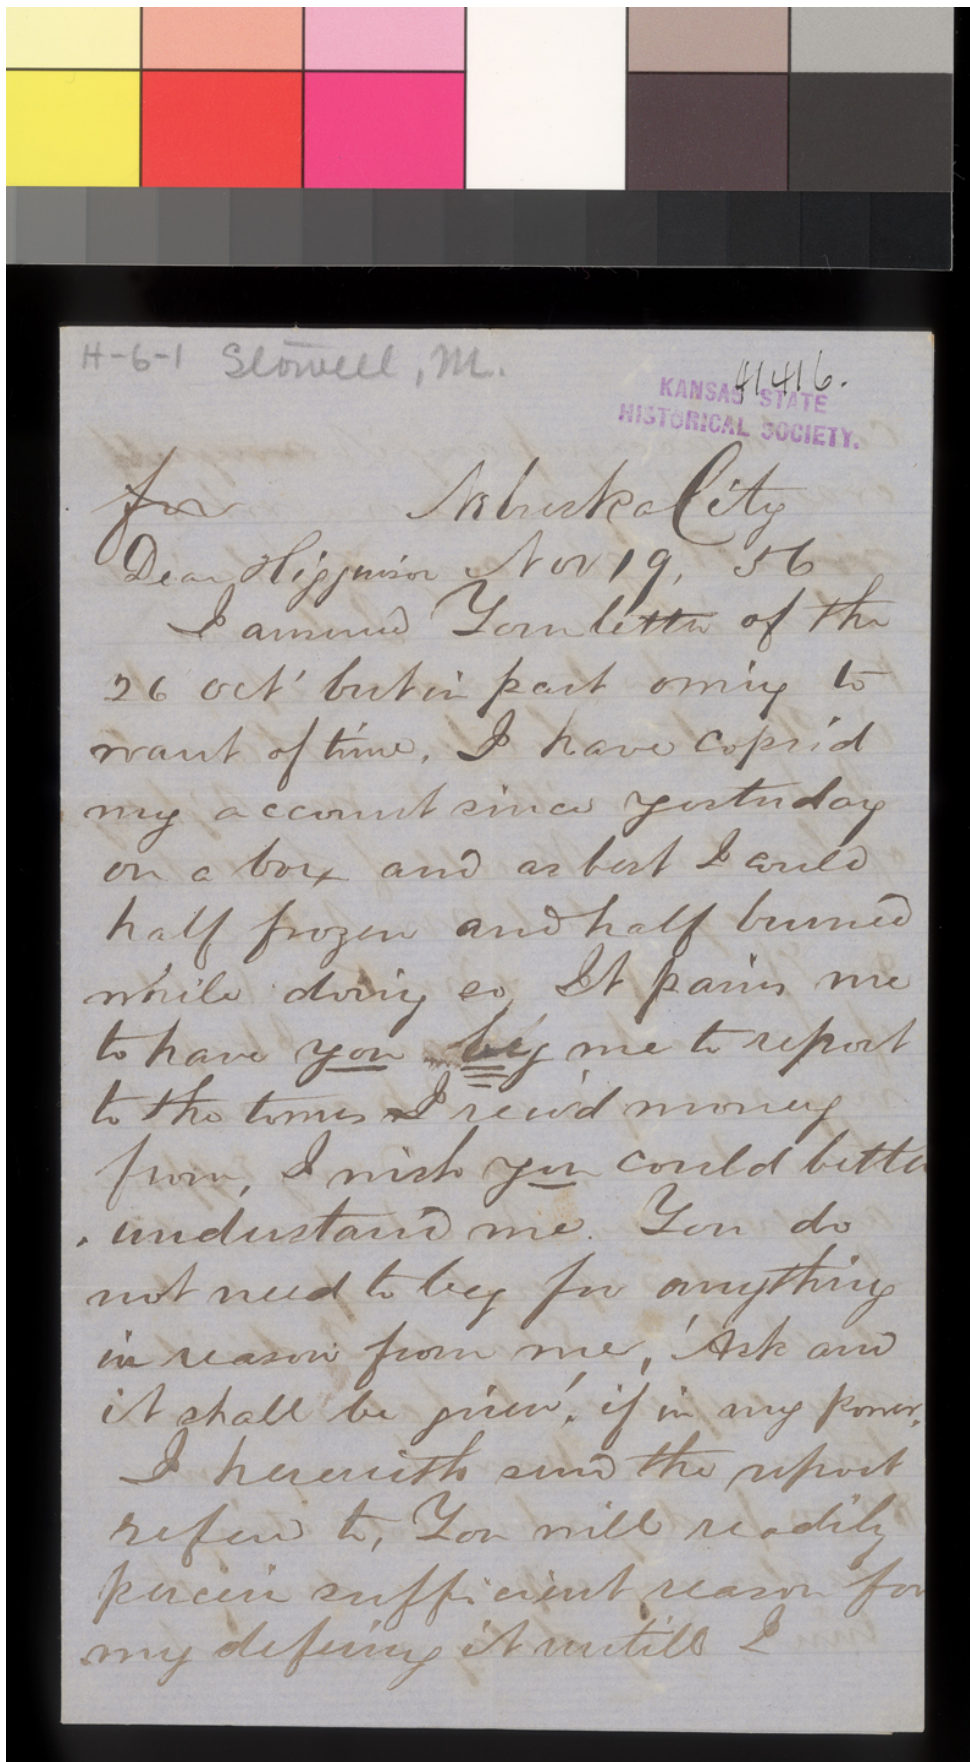 H-6-1 Stowell, M.
41416.
KANSAS STATE
HISTORICAL SOCIETY.
for Nebraska City
Dear Higginson Nov 19, 56
I answered Your letter of the
26 Oct' but in part owing to
want of time, I have copied
my account since yesterday
on a box and as best I could
half frozen and half burned
while doing so, It pains me
to have you beg me to report
to the towns I reciv'd money
from, I wish you could better
understand me. You do
not need to beg for anything
in reason from me, 'Ask and
it shall be given', if in my power,
I herewith send the report
refered to, You will readily
perceive sufficient reason for
my defering it untill I